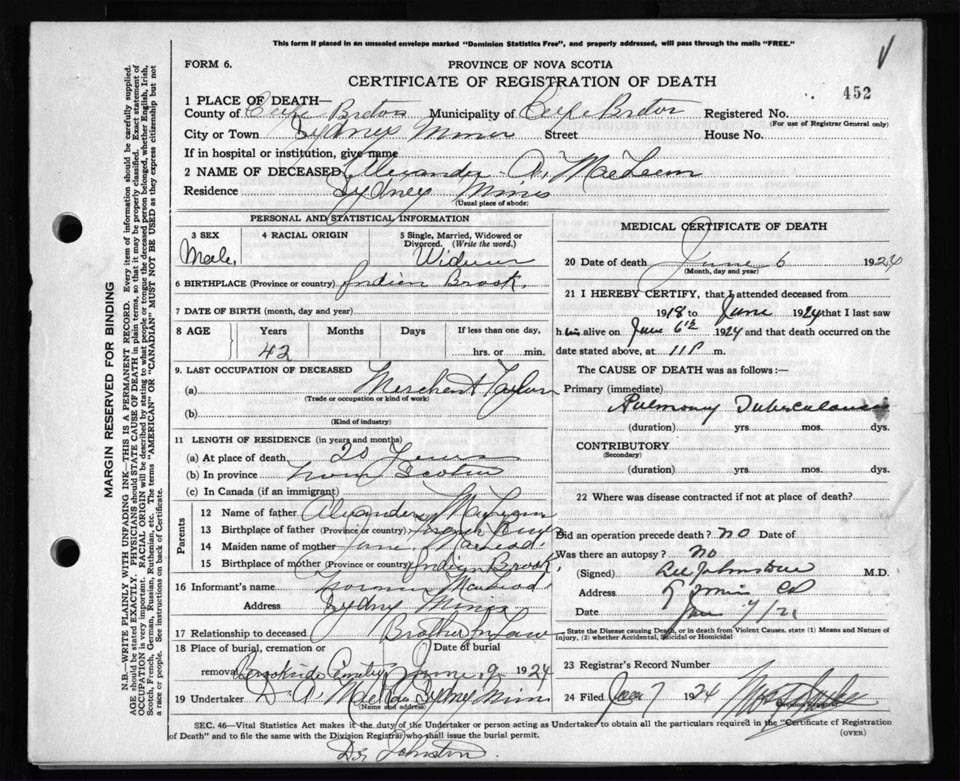 This form if placed in an unsealed envelope marked "Dominion Statistics Free", and properly addressed, will pass through the mails "FREE."
FORM 6.
PROVINCE OF NOVA SCOTIA
CERTIFICATE OF REGISTRATION OF DEATH
452
1 PLACE OF DEATH—
County of Cape Breton Municipality of Cape Breton Registered No.
(For use of Registrar General only)
City or Town Sydney Mines Street House No.
If in hospital or institution, give name
2 NAME OF DECEASED Alexander A. MacLean
Residence Sydney Mines
(Usual place of abode)
PERSONAL AND STATISTICAL INFORMATION
3 SEX 4 RACIAL ORIGIN 5 Single, Married, Widowed or Divorced. (Write the word.)
Male Widower
6 BIRTHPLACE (Province or country) Indian Brook
7 DATE OF BIRTH (month, day and year)
8 AGE Years Months Days If less than one day,
42 hrs. or min.
9. LAST OCCUPATION OF DECEASED
(a) Merchant Taylor
(Trade or occupation or kind of work)
(b)
(Kind of industry)
11 LENGTH OF RESIDENCE (in years and months)
(a) At place of death 20 Years
(b) In province Nova Scotia
(c) In Canada (if an immigrant)
Parents
12 Name of father Alexander MacLean
13 Birthplace of father (Province or country) French River
14 Maiden name of mother Jane MacLeod
15 Birthplace of mother (Province or country) Indian Brook
16 Informant's name MacLeod
Address Sydney Mines
17 Relationship to deceased Brother in Law
18 Place of burial, cremation or removal Date of burial
Brookside Cemetery June 9 1924
19 Undertaker D. A. Sydney Mines
(Name and address)
MEDICAL CERTIFICATE OF DEATH
20 Date of death June 6 1924
(Month, day and year)
21 I HEREBY CERTIFY, that I attended deceased from
1918 to June 1924 that I last saw
him alive on June 6th 1924 and that death occurred on
date stated above, at 11 P m.
The CAUSE OF DEATH was as follows:—
Primary (immediate)
Pulmonary Tuberculosis
(duration) yrs. mos. dys.
CONTRIBUTORY
(Secondary)
(duration) yrs. mos. dys.
22 Where was disease contracted if not at place of death?
Did an operation precede death? no Date of
Was there an autopsy? no
(Signed) Johnstone M.D.
Address S Mines CB
Date
State the Disease causing Death, or in death from Violent Causes, state (1) Means and Nature of Injury, (2) whether Accidental, Suicidal or Homicidal
23 Registrar's Record Number
24 Filed June 7 1924
Division Registrar
SEC. 46—Vital Statistics Act makes it the duty of the Undertaker or person acting as Undertaker to obtain all the particulars required in the "Certificate of Registration of Death" and to file the same with the Division Registrar who shall issue the burial permit.
(OVER)
Dr Johnston.
MARGIN RESERVED FOR BINDING
N.B.—WRITE PLAINLY WITH UNFADING INK—THIS IS A PERMANENT RECORD. Every item of information should be carefully supplied.
AGE should be stated EXACTLY. PHYSICIANS should STATE CAUSE OF DEATH in plain terms, so that it may be properly classified. Exact statement of
OCCUPATION is very important. RACIAL ORIGIN will be described by stating to what people or tongue the deceased person belonged, whether English, Irish,
Scotch, French, German, Russian, Ruthenian, etc. The terms "AMERICAN" OR "CANADIAN" MUST NOT BE USED as they express citizenship but not
a race or people. See instructions on back of Certificate.